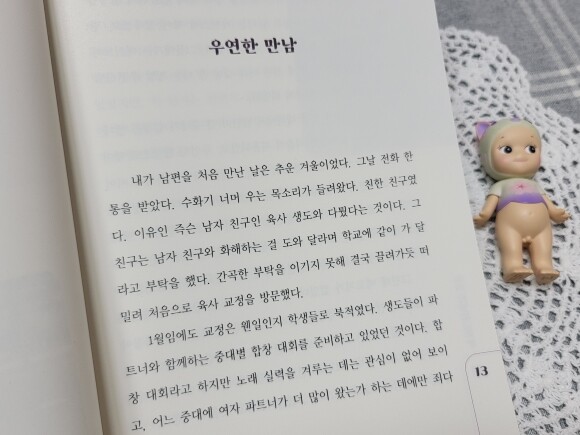 우연한 만남
내가 남편을 처음 만난 날은 추운 겨울이었다. 그날 전화 한
통을 받았다. 수화기 너머 우는 목소리가 들려왔다. 친한 친구였
다. 이유인 즉슨 남자 친구인 육사 생도와 다퉜다는 것이다. 그
친구는 남자 친구와 화해하는 걸 도와 달라며 학교에 같이 가 달
라고 부탁을 했다. 간곡한 부탁을 이기지 못해 결국 끌려가듯 떠
밀려 처음으로 육사 교정을 방문했다.
1월임에도 교정은 웬일인지 학생들로 북적였다. 생도들이 파
트너와 함께하는 중대별 합창 대회를 준비하고 있었던 것이다. 합
창 대회라고 하지만 노래 실력을 겨루는 데는 관심이 없어 보이
고, 어느 중대에 여자 파트너가 더 많이 왔는가 하는 데에만 죄다
13